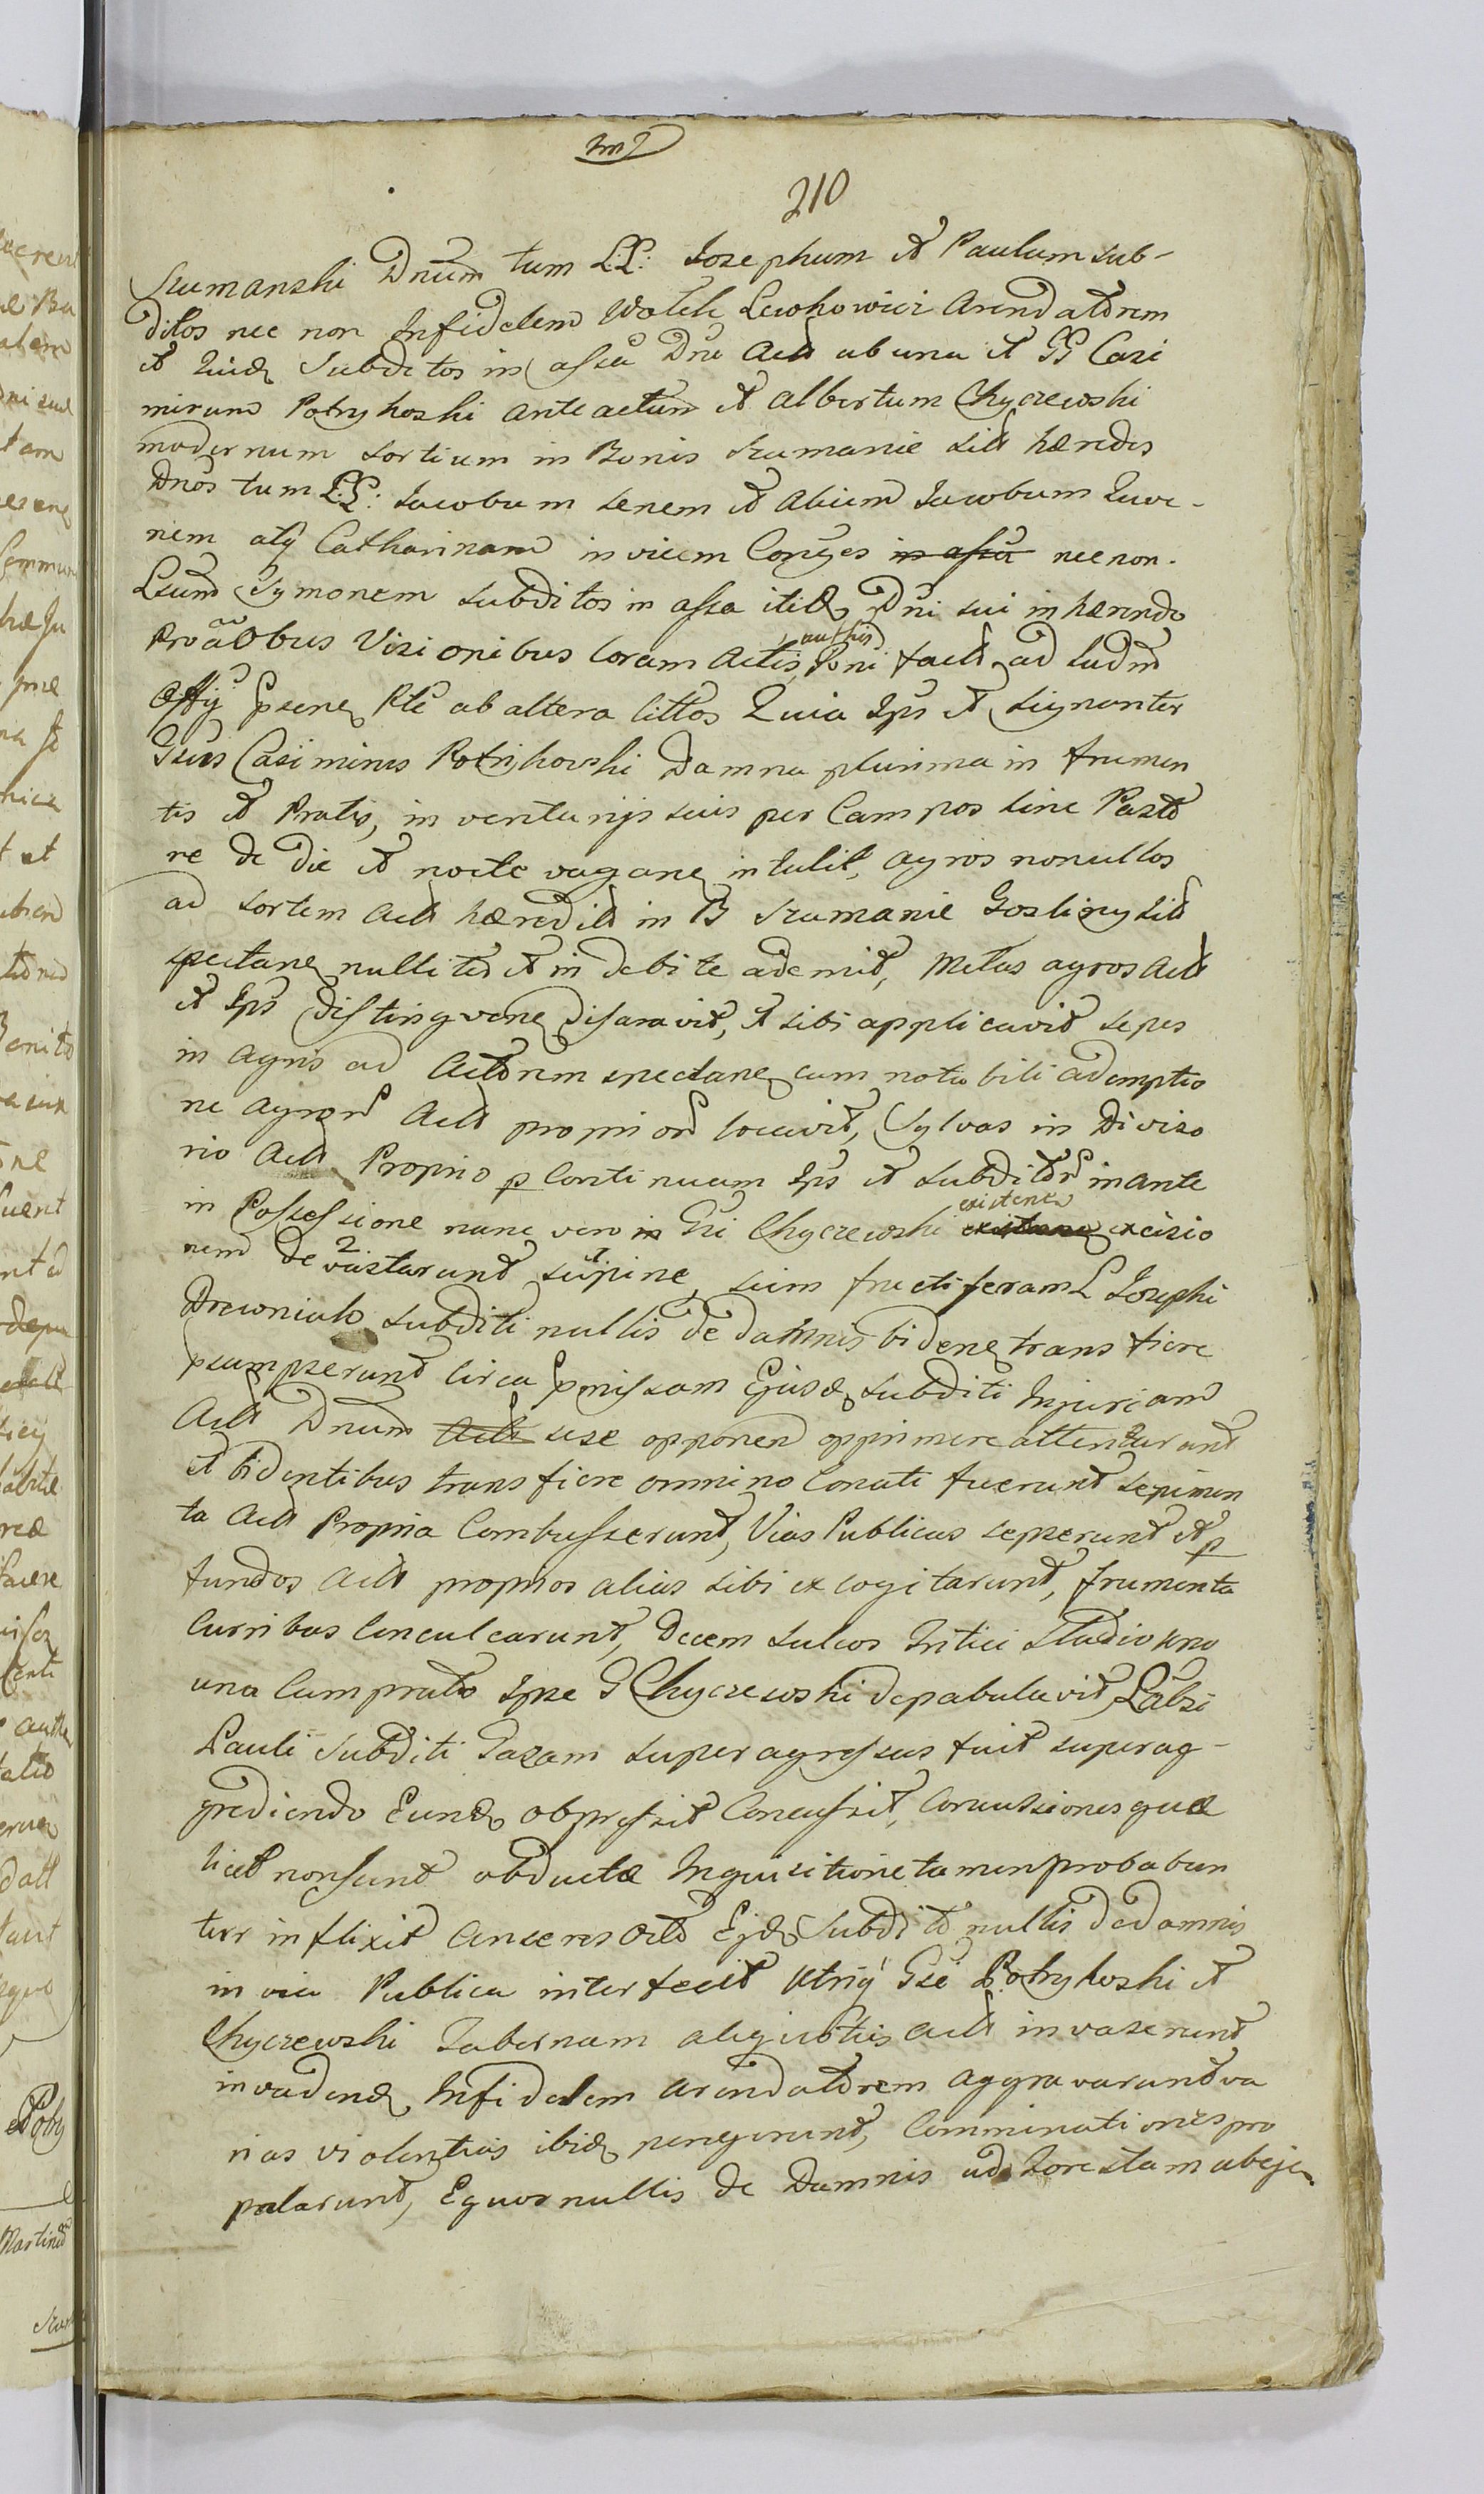 210
Szumanski Dnum tum LL: Josephum et Paulum sub-
ditos nec non Infidelem Wolek Lewkowicz Arendatorem
et Quidē Subditos in assa Dni Acts ab una et GG Casi
mirum Potrykoski anteactum et Albertum Chyczewski
modernum sortium in Bonis Szumanie sitt hæredes
Dnos tum LL: Jacobum senem et Alium Jacobum Juve-
nem atq Catharinam invicem Conjges in assa nec non
Lsum Symonem subditos in assa itide Dni sui inhærendo
Proaōbus Visionibus Coram Actis authis Pnī factt ad Iudm
Offij Psene Rle ab altera cittos Quia Ips et signanter
Gsus Casimirus Potrykowski Damna plurima in frumen
tis et Pratis, in venturijs suis per Campos sine Pasto
re de die et nocte vagane intulit, agros nonullos
ad sortem Acts hæredit in B Szumanie Goslincy sit
spectane nullited et indebite ademit, Metas agros Acts
et Ips distingvene disaravit, et sibi applicavit sepes
in agris ad Actorem spectane cum notabili ademptio
ne agror Acts proprior locavit, Sylvas in Diviso
rio Acts Proprio p Continuam Ips et subditor in ante
in Possessione nunc vero in Gsi Chyczewski existen excisio
nem de vastarunt supine, sium fructiferam L Josephi
Drewniak subditi nullis de damnis bidene transfiere
psumpserunt circa pmissam Ejusd subditi Injuriam
Acts Dnum Acts sese opponen opprimere attentarunt
et bidentibus transfiere omnino Conati fuerunt sepimen
ta Acts Propria Combusserunt, Vias Publicas sepserunt et p
fundos Acts proprios alias sibi excogitarunt, frumenta
Curribus Conculcarunt, Decem sulcos Tritici studio uno
una Cum prato Ipse G Chyczewski depabulavit, Labsi
Pauli subditi Gazam superagressus fuit superag-
grediendo Eund obpressit Concussit, Concussiones quæ
licet non sunt obductæ Inquisitione tamen probabun
tur inflixit Anseres octo Ejd Subditi nullis de damnis
in via Publica interfecit utriq Gsi Potrykoski et
Chyczewski Tabernam aliquoties Acts invaserunt
invadend Infidelem arendatorem aggravarunt va
rias violentias ibid peregerunt, Comminationes pro
palarunt, Equos nullis de Damnis ad forestam abeje